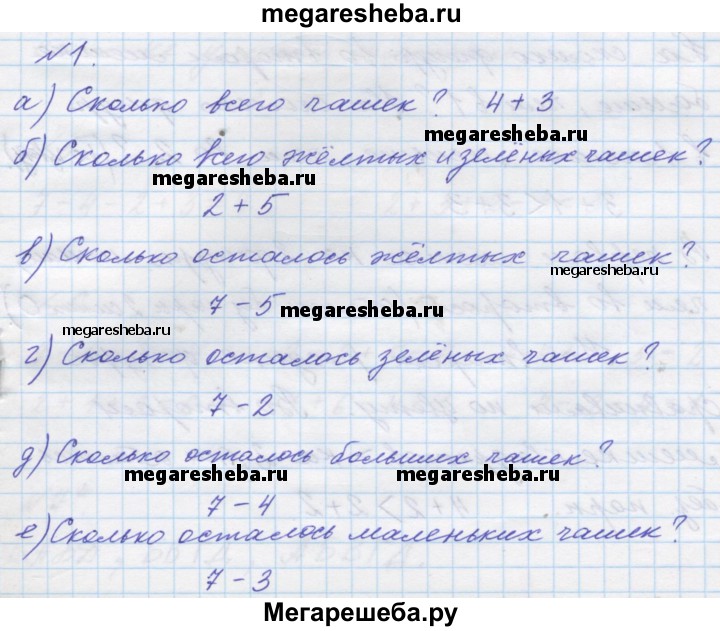 megaresheba.ru
№1.
а) Сколько всего чашек? 4+3
megaresheba.ru
б) Сколько всего жёлтых и зелёных чашек?
megaresheba.ru
2+5
в) Сколько осталось жёлтых чашек?
megaresheba.ru
7-5 megaresheba.ru
megaresheba.ru
г) Сколько осталось зелёных чашек?
7-2
д) Сколько осталось больших чашек?
megaresheba.ru megaresheba.ru
7-4
е) Сколько осталось маленьких чашек?
7-3
Мегарешеба.ру